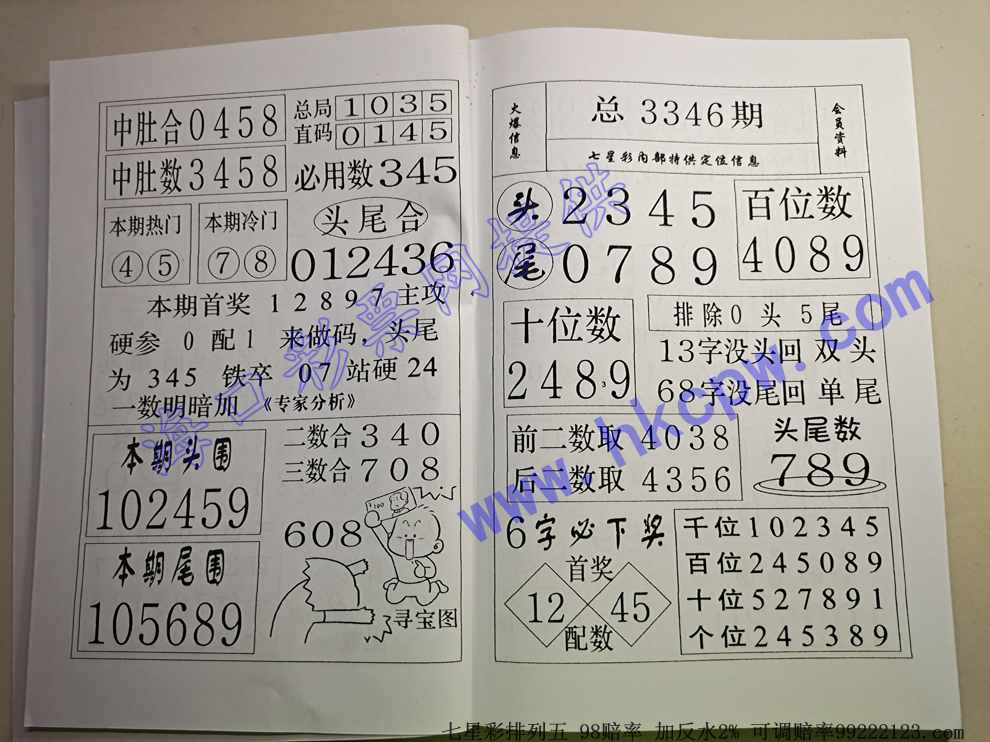 中肚合0458
总局1035
直码0145
中肚数3458
必用数345
本期热门
④⑤
本期冷门
⑦⑧
头尾合
012436
本期首奖 12897主攻
硬参 0 配1 来做码，头尾
为 345 铁卒 07站硬24
一数明暗加 《专家分析》
本期头围
102459
二数合340
三数合708
608
100
本期尾围
105689
寻宝图
火爆信息
总 3346期
七星彩内部特供定位信息
会员资料
头 2345
尾 0789
百位数
4089
十位数
2489
3
排除0 头 5尾
13字没头回 双 头
68字没尾回 单 尾
前二数取 4038
后二数取 4356
头尾数
789
6字必下奖
首奖
12 45
配数
千位102345
百位245089
十位527891
个位245389
海口彩票网提供
www.hkcpw.com
七星彩排列五 98赔率 加反水2% 可调赔率99222123.com